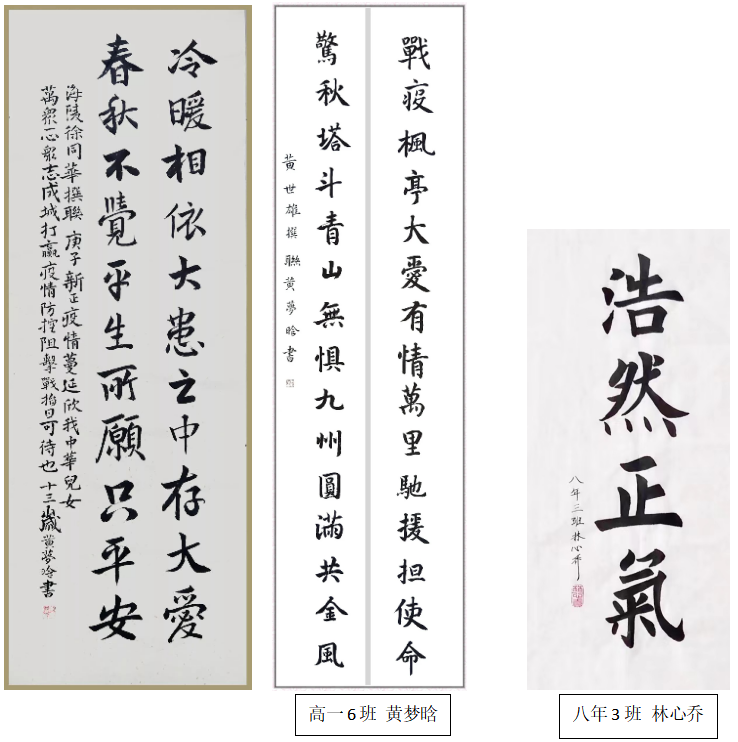 冷暖相依大患之中存大愛
春秋不覺平生所願只平安
海陵徐同華撰聯 庚子新正疫情蔓延欣我中華兒女
萬衆一心衆志成城打贏疫情防控阻擊戰指日可待也 十三歲黃夢晗書
戰疫楓亭大愛有情萬里馳援担使命
驚秋塔斗青山無惧九州圓滿共金風
黃世雄撰聯黃夢晗書
浩然正氣
八年三班林心乔
高一 6 班 黄梦晗
八年 3 班 林心乔